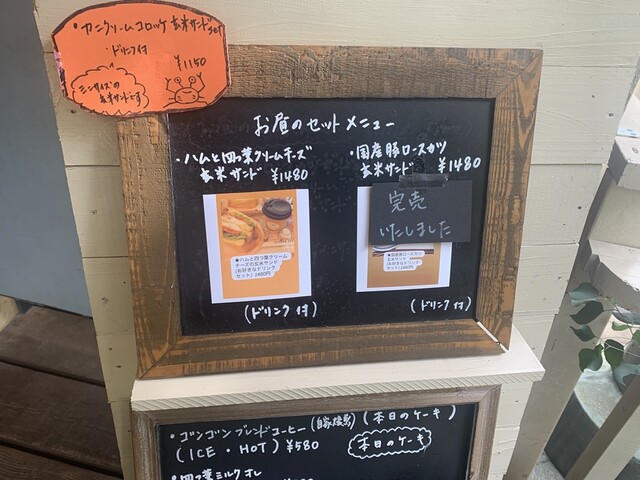 ・カニクリームコロッケ玄米サンドSET
・ドリンク付
¥1150
ミニサイズの
玄米サンドです
お昼のセットメニュー
・ハムと四つ葉クリームチーズ
玄米サンド ¥1480
★ハムと四つ葉クリーム
チーズの玄米サンド
(お好きなドリンク
セット)1480円
(ドリンク付)
・国産豚ロースカツ
玄米サンド ¥1480
完売
いたしました
★国産豚ロースカツ
玄米サンド
(お好きなドリンク
セット)1480円
(ドリンク付)
・ゴンゴンブレンドコーヒー(自家焙煎)
(ICE・HOT) ¥580
(本日のケーキ)
本日のケーキ
・四つ葉ミルクオレ